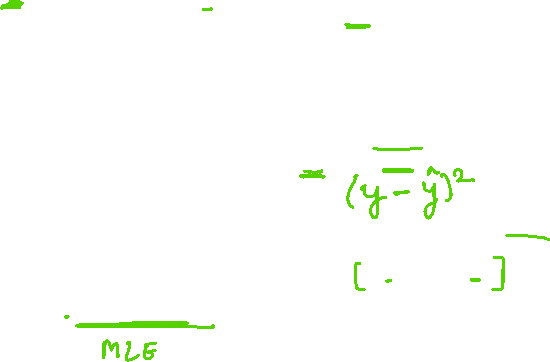 = (y - ŷ)²
[ . - ]
MLE